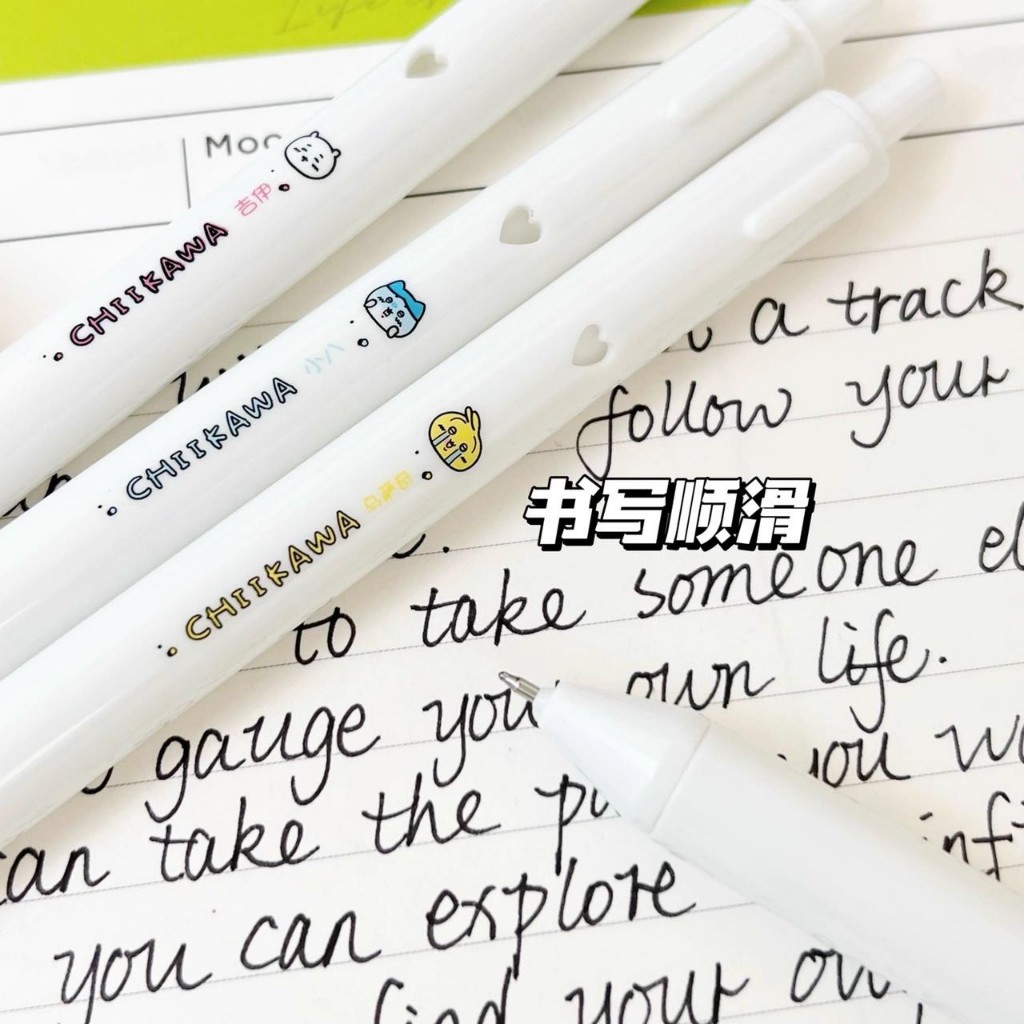 Life
Moo
CHIIKAWA 吉伊
CHIIKAWA 小八
CHIIKAWA 乌萨奇
a track
follow your
书写顺滑
to take someone
gauge your own life.
you
can take the
you can explore
find your own